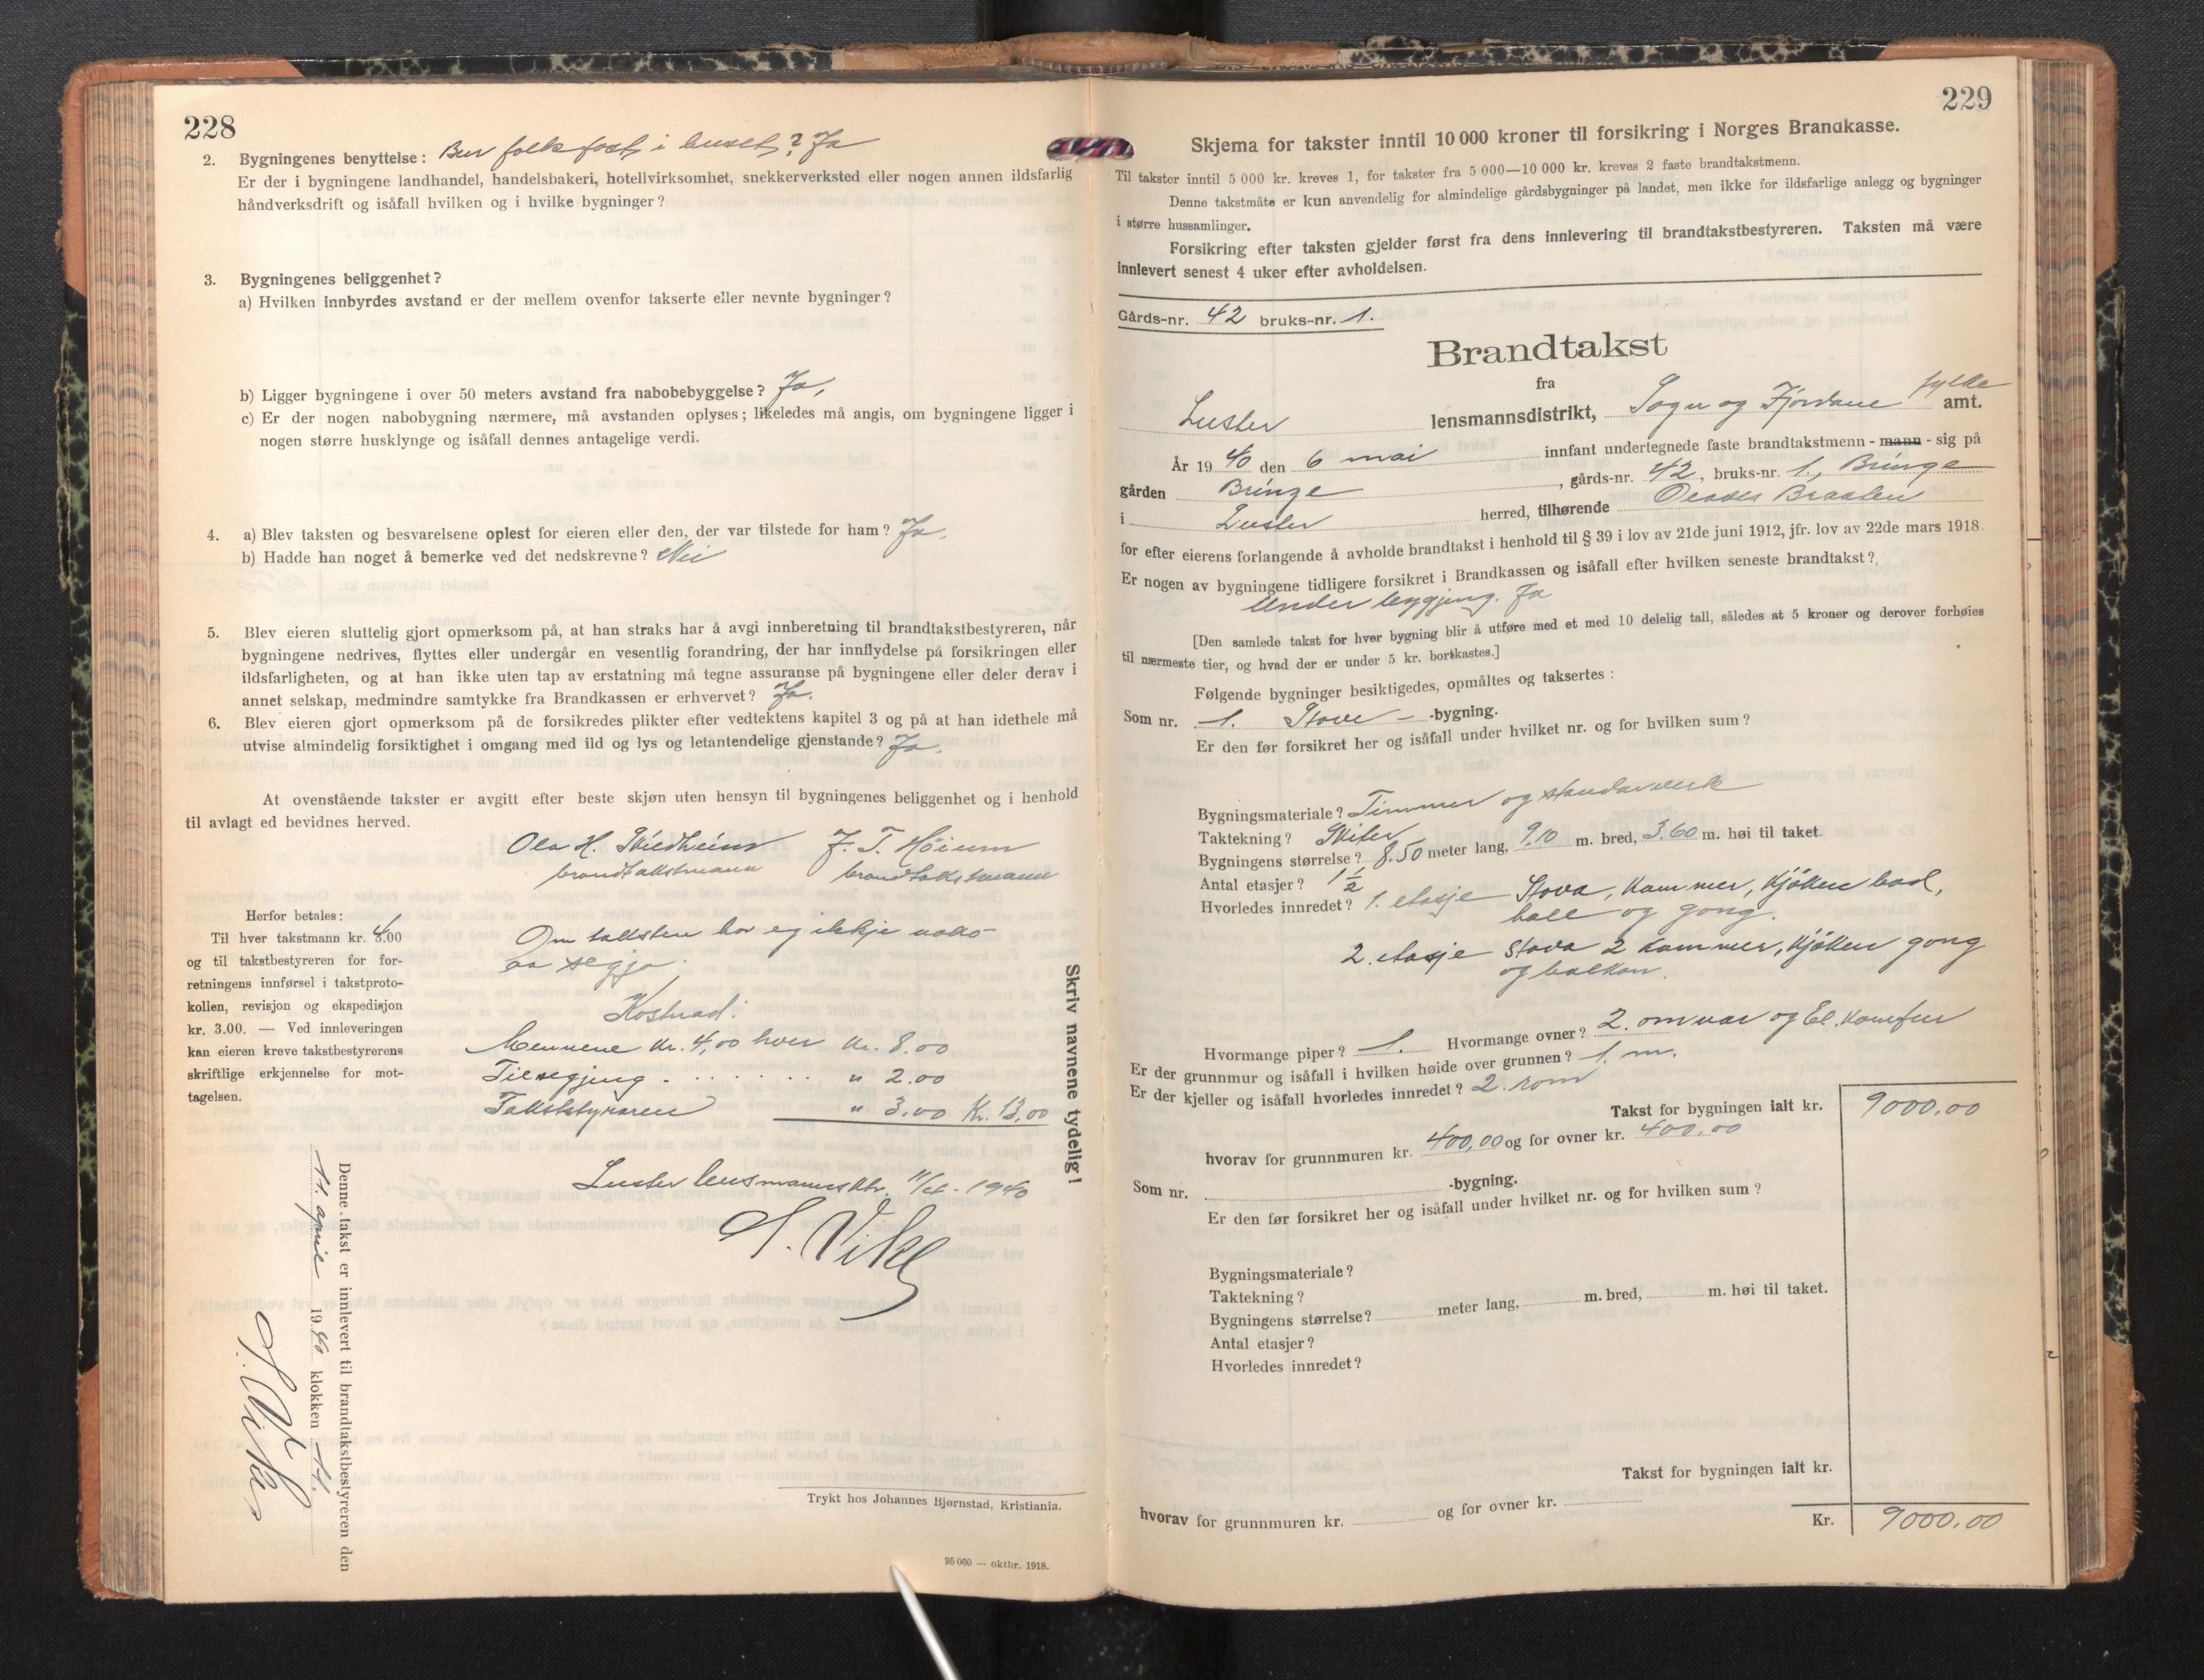 228
2. Bygningenes benyttelse: Bur folk fast i huset? Ja
Er der i bygningene landhandel, handelsbakeri, hotellvirksomhet, snekkerverksted eller nogen annen ildsfarlig
håndverksdrift og isåfall hvilken og i hvilke bygninger?
3. Bygningenes beliggenhet?
a) Hvilken innbyrdes avstand er der mellem ovenfor takserte eller nevnte bygninger?
b) Ligger bygningene i over 50 meters avstand fra nabobebyggelse? Ja,
c) Er der nogen nabobygning nærmere, må avstanden oplyses; likeledes må angis, om bygningene ligger i
nogen større husklynge og isåfall dennes antagelige verdi.
4. a) Blev taksten og besvarelsene oplest for eieren eller den, der var tilstede for ham? Ja.
b) Hadde han noget å bemerke ved det nedskrevne? Nei
5. Blev eieren sluttelig gjort opmerksom på, at han straks har å avgi innberetning til brandtakstbestyreren, når
bygningene nedrives, flyttes eller undergår en vesentlig forandring, der har innflydelse på forsikringen eller
ildsfarligheten, og at han ikke uten tap av erstatning må tegne assuranse på bygningene eller deler derav i
annet selskap, medmindre samtykke fra Brandkassen er erhvervet? Ja.
6. Blev eieren gjort opmerksom på de forsikredes plikter efter vedtektens kapitel 3 og på at han idethele må
utvise almindelig forsiktighet i omgang med ild og lys og letantendelige gjenstande? Ja.
At ovenstående takster er avgitt efter beste skjøn uten hensyn til bygningenes beliggenhet og i henhold
til avlagt ed bevidnes herved.
Ola H. J. T. Høium
brandtakstmann brandtakstmann
Herfor betales:
Til hver takstmann kr. 4.00
og til takstbestyreren for for-
retningens innførsel i takstproto-
kollen, revisjon og ekspedisjon
kr. 3.00. — Ved innleveringen
kan eieren kreve takstbestyrerens
skriftlige erkjennelse for mot-
tagelsen.
Om taksten har eg ikkje noko
aa segja.
Kostnad:
Mennene kr. 4,00 hver kr. 8.00
Tilsegjing . . . . . . . " 2.00
Takststyraren " 3.00 Kr. 13,00
Luster lensmannsktr. 11/4-1940
S. Vikg
Skriv navnene tydelig!
Denne takst er innlevert til brandtakstbestyreren den
11. april 1940 klokken 11.
Trykt hos Johannes Bjørnstad, Kristiania.
95 000 — oktbr. 1918.
229
Skjema for takster inntil 10 000 kroner til forsikring i Norges Brandkasse.
Til takster inntil 5 000 kr. kreves 1, for takster fra 5 000—10 000 kr. kreves 2 faste brandtakstmenn.
Denne takstmåte er kun anvendelig for almindelige gårdsbygninger på landet, men ikke for ildsfarlige anlegg og bygninger
i større hussamlinger.
Forsikring efter taksten gjelder først fra dens innlevering til brandtakstbestyreren. Taksten må være
innlevert senest 4 uker efter avholdelsen.
Gårds-nr. 42 bruks-nr. 1.
Brandtakst
fra
Luster lensmannsdistrikt, Sogn og Fjordane fylke amt.
År 1940 den 6 mai innfant undertegnede faste brandtakstmenn - mann - sig på
gården Bringe, gårds-nr. 42, bruks-nr. 1, Bringe
i Luster herred, tilhørende Braaten
for efter eierens forlangende å avholde brandtakst i henhold til § 39 i lov av 21de juni 1912, jfr. lov av 22de mars 1918.
Er nogen av bygningene tidligere forsikret i Brandkassen og isåfall efter hvilken seneste brandtakst?
Under bygging. Ja
[Den samlede takst for hver bygning blir å utføre med et med 10 delelig tall, således at 5 kroner og derover forhøies
til nærmeste tier, og hvad der er under 5 kr. bortkastes.]
Følgende bygninger besiktigedes, opmåltes og taksertes:
Som nr. 1. Stove - -bygning.
Er den før forsikret her og isåfall under hvilket nr. og for hvilken sum?
Bygningsmateriale? Timmer og standarverk
Taktekning? Skifer
Bygningens størrelse? 8.50 meter lang, 9.10 m. bred, 3.60 m. høi til taket.
Antal etasjer? 1 1/2
Hvorledes innredet? 1. etasje Stova, kammer, kjøken bad,
hall og gong.
2. etasje stova 2 kammer, kjøken gong
og balkon.
Hvormange piper? 1. Hvormange ovner? 2. omnar og El. komfur
Er der grunnmur og isåfall i hvilken høide over grunnen? 1. m.
Er der kjeller og isåfall hvorledes innredet? 2. rom
Takst for bygningen ialt kr. 9000.00
hvorav for grunnmuren kr. 400,00 og for ovner kr. 400.00
Som nr. -bygning.
Er den før forsikret her og isåfall under hvilket nr. og for hvilken sum?
Bygningsmateriale?
Taktekning?
Bygningens størrelse? meter lang, m. bred, m. høi til taket.
Antal etasjer?
Hvorledes innredet?
Takst for bygningen ialt kr.
hvorav for grunnmuren kr. og for ovner kr.
Kr. 9000.00